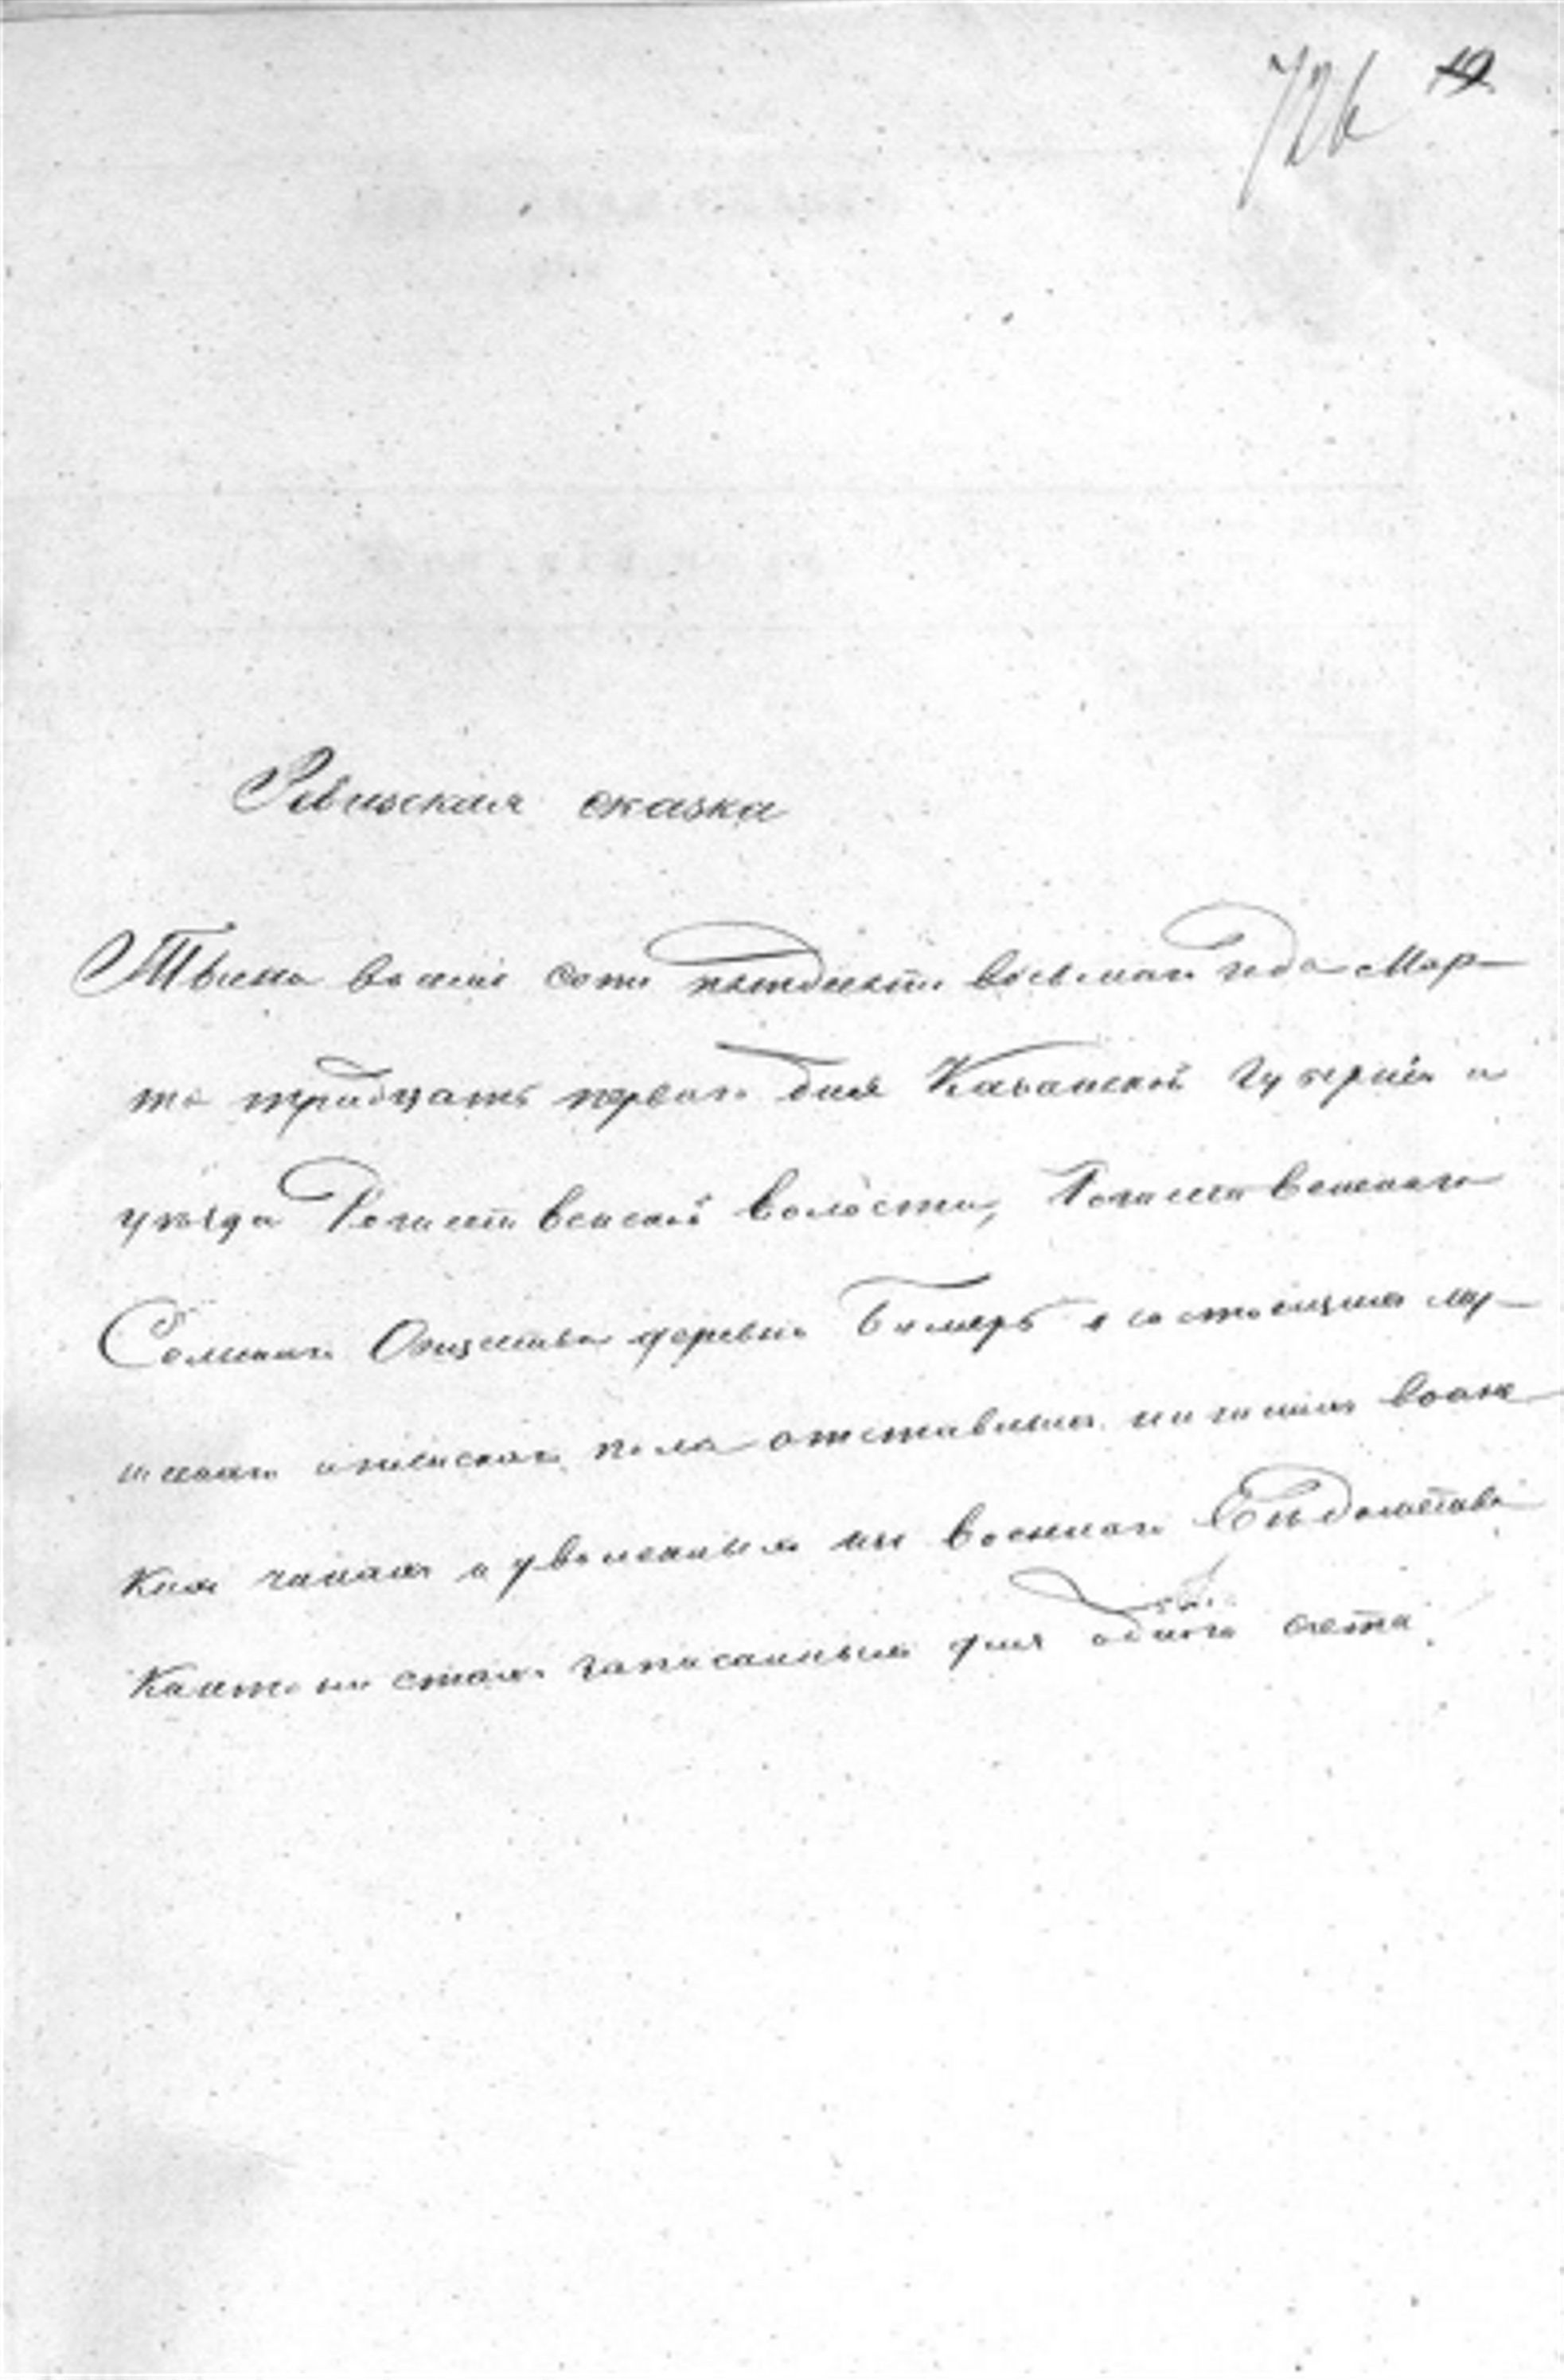 726 19
Ревизская сказка
Тысяча восемь сотъ пятьдесятъ восьмаго года Мар-
та тридцать перваго дня Казанской губерніи и
уѣзда Рождественской волости, Рождественскаго
Сельскаго Общества деревни Бимерь о состоящихъ му-
жескаго и женскаго пола отставныхъ нижнихъ воинс
кихъ чинахъ и уволенныхъ изъ военнаго Вѣдомства
Кантонистахъ записанныхъ для однаго счета.